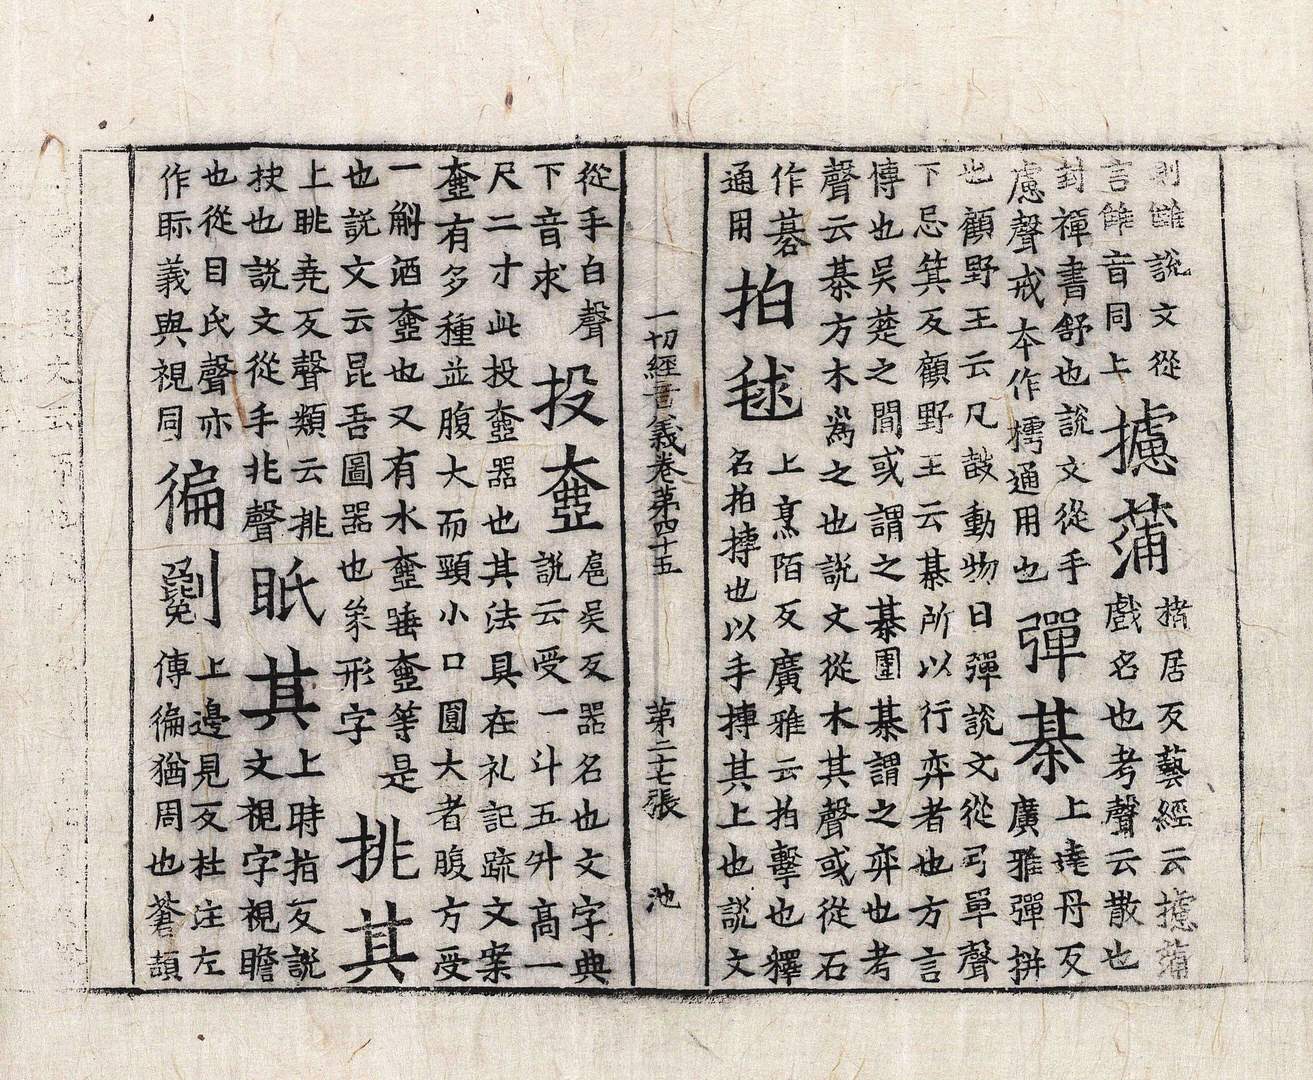 說文從
言雔音同上
攄蒲
猪居反藝經云攄蒱
戲名也考聲云散也
封禪書舒也說文從手
慮聲戒本作摴通用也
彈棊
上逹丹反
廣雅彈拼
也顧野王云凡鼓動物曰彈說文從弓單聲
下忌箕反顧野王云棊所以行弈者也方言
博也吳楚之間或謂之棊圍棊謂之弈也考
聲云棊方木爲之也說文從木其聲或從石
作碁
通用
拍毬
上烹陌反廣雅云拍擊也釋
名拍搏也以手搏其上也說文
一切經音義卷第四十五 第二十七張 池
從手白聲
下音求
投壺
扈吴反器名也文字典
說云受一斗五升高一
尺二寸此投壺器也其法具在礼記疏文案
壺有多種並腹大而頸小口圓大者腹方受
一斛酒壺也又有水壺唾壺等是
也說文云昆吾圖器也象形字
挑其
上眺尭反聲類云挑
抉也說文從手兆聲
眂其
上時指反說
文視字視瞻
也從目氏聲亦
作眎義與視同
徧
上邊見反杜注左
傳徧猶周也蒼頡